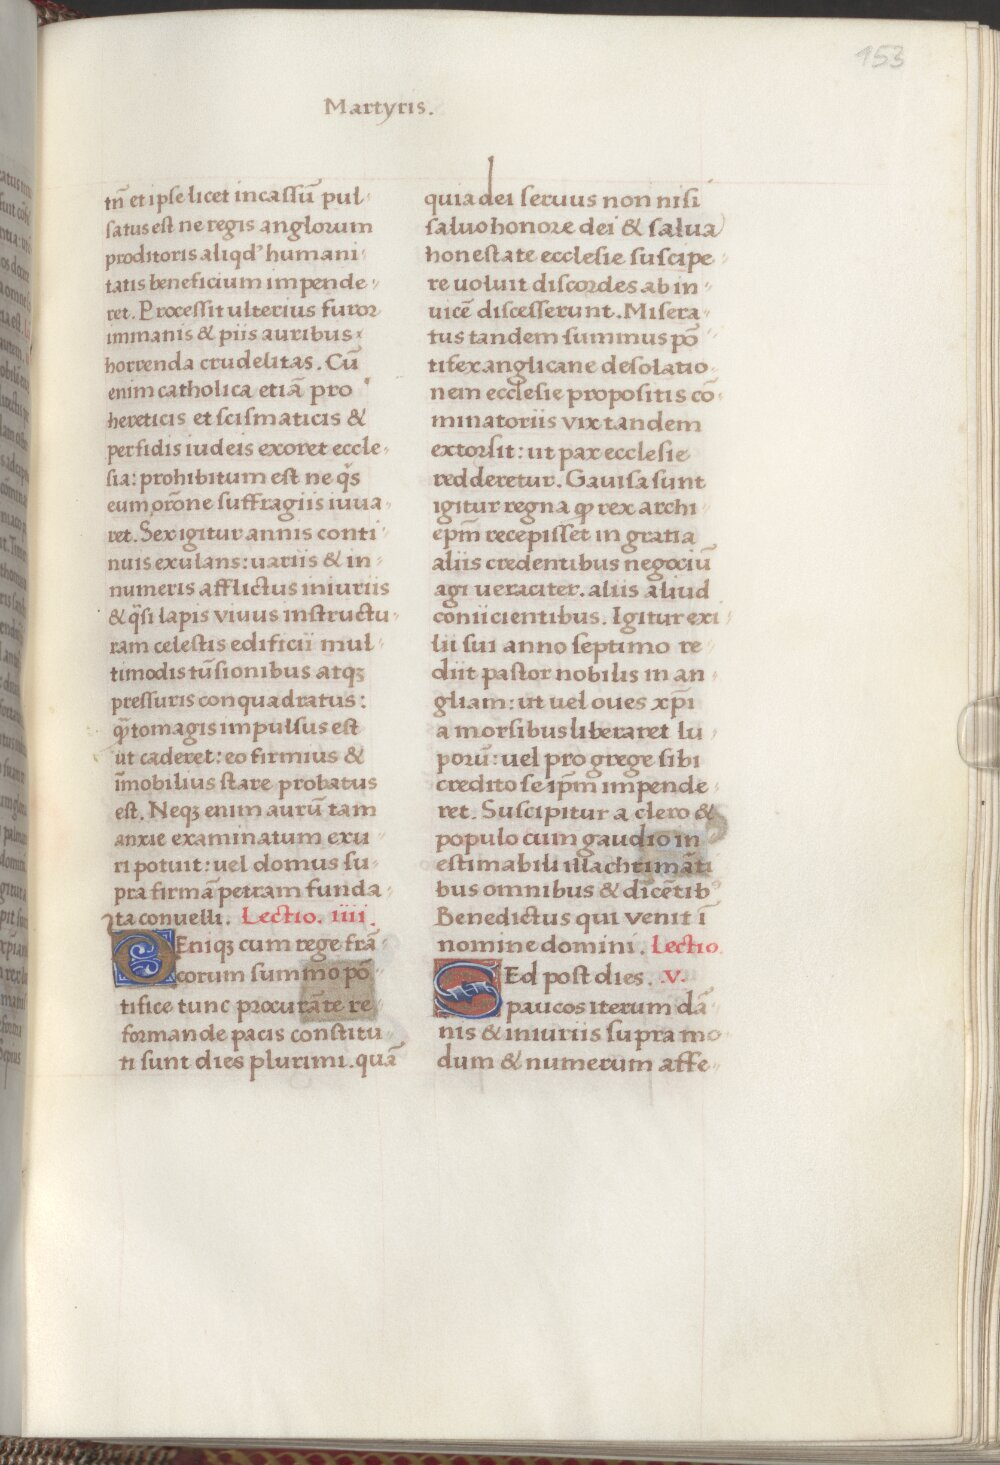 153
Martyris.
tñ et ipse licet incassū pul-
satus est ne regis anglorum
proditoris aliqd' humani-
tatis beneficium impende-
ret. Processit ulterius furor
immanis & piis auribus
horrenda crudelitas. Cū
enim catholica etiā pro
hereticis et scismaticis &
perfidis iudeis exoret eccle-
sia: prohibitum est ne qͥs
eum orōne suffragiis iuua-
ret. Sex igitur annis conti-
nuis exulans: uariis & in-
numeris afflictus iniuriis
& qͣsi lapis viuus instructu-
ram celestis edificii mul-
timodis tūsionibus atqꝫ
pressuris conquadratus:
qͣto magis impulsus est
ut caderet: eo firmius &
īmobilius stare probatus
est. Neqꝫ enim aurū tam
anxie examinatum exu-
ri potuit: uel domus su-
pra firmā petram funda-
ta conuelli. Lectio. iiii.
DEniqꝫ cum rege frā-
corum summo pō-
tifice tunc procurāte re-
formande pacis constitu-
ti sunt dies plurimi. quā
quia dei seruus non nisi
saluo honore dei & salua
honestate ecclesie suscipe-
re uoluit discordes ab in-
uicē discesserunt. Misera-
tus tandem summus pō-
tifex anglicane desolatio-
nem ecclesie propositis cō-
minatoriis vix tandem
extorsit: ut pax ecclesie
redderetur. Gauisa sunt
igitur regna ꝙ rex archi-
ep̄m recepisset in gratia
aliis credentibus negociū
agi ueraciter. aliis aliud
coniicientibus. Igitur exi-
lii sui anno septimo re-
diit pastor nobilis in an-
gliam: ut uel oues xp̄i
a morsibus liberaret lu-
porū: uel pro grege sibi
credito seip̄m impende-
ret. Suscipitur a clero &
populo cum gaudio in-
estimabili illachrimāti-
bus omnibus & dicētib'
Benedictus qui venit ī
nomine domini. Lectio
SEd post dies. v.
paucos iterum dā-
nis & iniuriis supra mo-
dum & numerum affe-